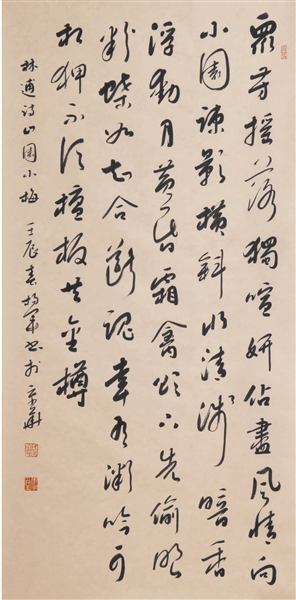 眾芳搖落獨喧妍佔盡風情向
小園疎影橫斜水清淺暗香
浮動月黃昏霜禽欲下先偷眼
粉蝶如知合斷魂幸有微吟可
相狎不須檀板共金樽
林逋詩山園小梅 壬辰春 書於京華